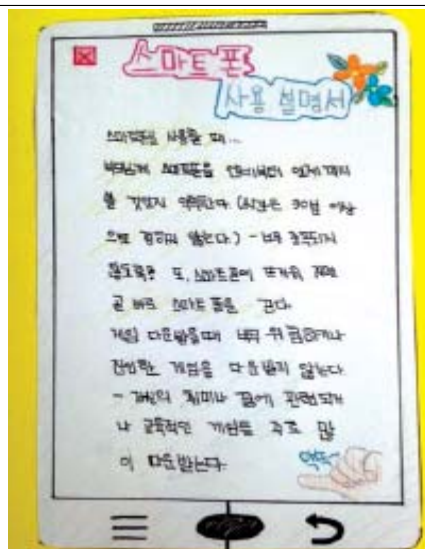 스마트폰
사용 설명서
스마트폰을 사용할 때...
부모님께 스마트폰을 언제부터 언제까지
할 것인지 약속한다. (시간은 30분 이상
으로 정하지 않는다.) - 너무 중독되지
않도록 또, 스마트폰이 뜨거워 지면
곧 바로 스마트폰을 끈다.
게임 다운받을때 너무 위험하거나
잔인한 게임을 다운받지 않는다
- 자신의 취미나 꿈에 관련되거
나 교육적인 게임을 주로 많
이 다운받는다.
약속~